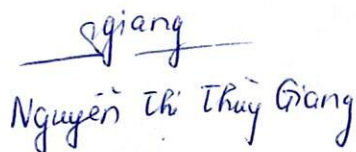 giang
Nguyễn Thị Thùy Giang